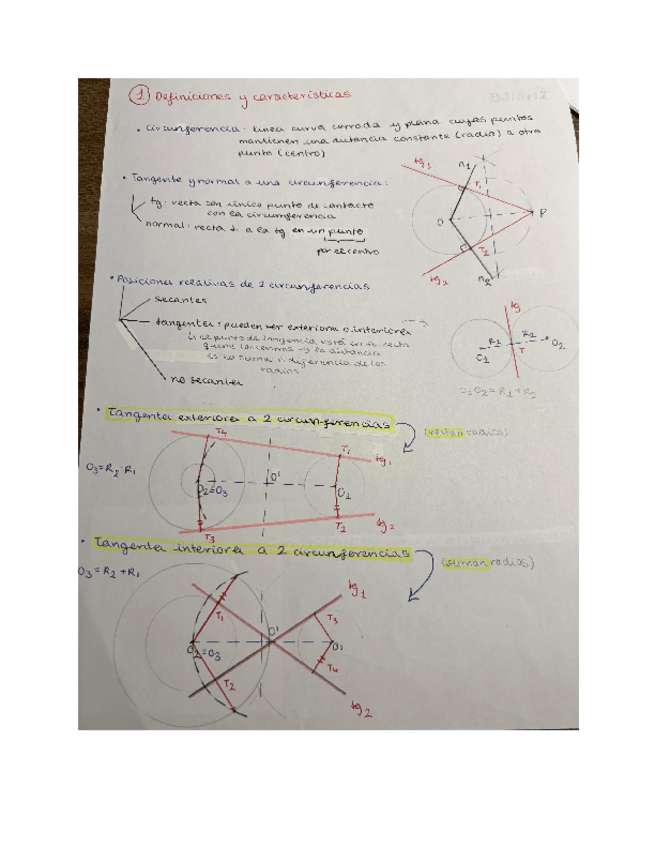 1 Definiciones y características
• Circunferencia: línea curva cerrada y plana cuyos puntos
mantienen una distancia constante (radio) a otro
punto (centro)
• Tangente y normal a una circunferencia:
tg: recta con único punto de contacto
con la circunferencia
normal: recta ⊥ a la tg en un punto
por el centro
tg1
n1
T1
O
P
T2
tg2
n2
• Posiciones relativas de 2 circunferencias
secantes
tangentes: pueden ser exteriores o interiores
el punto de tangencia está en la recta
q une los centros y la distancia
es la suma o diferencia de los
radios
no secantes
tg
R1
R2
O2
C1
T
O1O2 = R1 + R2
• Tangentes exteriores a 2 circunferencias
(restan radios)
O3 = R2 - R1
T4
T1
tg1
O2=O3
O'
O1
T3
T2
tg2
• Tangentes interiores a 2 circunferencias
(suman radios)
O3 = R2 + R1
tg1
T1
T3
O'
O2=O3
O1
T2
T4
tg2